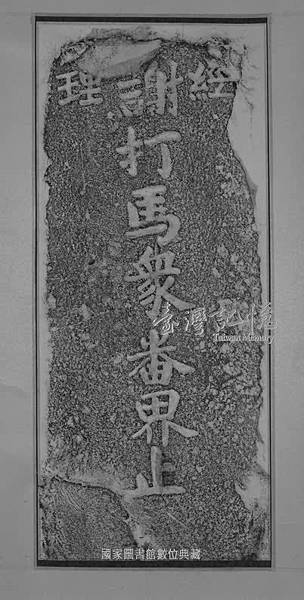 經理
謝打馬眾番界止
臺灣記憶
Taiwan Memory
國家圖書館數位典藏